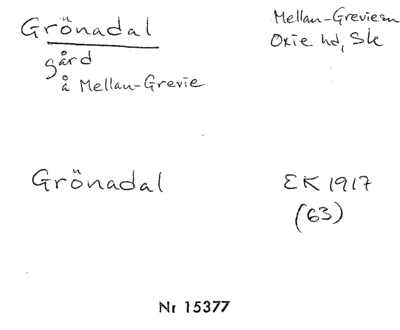 Grönadal
Mellan-Grevie sn
Oxie hd, Sk
gård
å Mellan-Grevie
Grönadal
EK 1917
(63)
Nr 15377